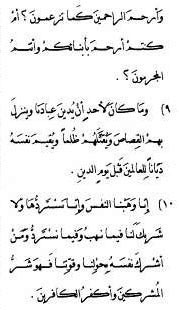 وأرحم الراحمين كما تزعمون؟ أم
كنتم أرحم بأبنائكم وأنتم
المجرمون؟.
٩) وما كان لأحد أن يدين عبادنا وينزل
بهم القصاص ويقتلهم ظلماً ويقيم نفسه
ديّاناً للعالمين قبل يوم الدين.
١٠) إنا وهبنا النفس وإنا نستردّها ولا
شريك لنا فيما نهب وفيما نستردّ ومن
أشرك نفسه بحولنا وقوتنا فهو شر
المشركين وأكفر الكافرين.